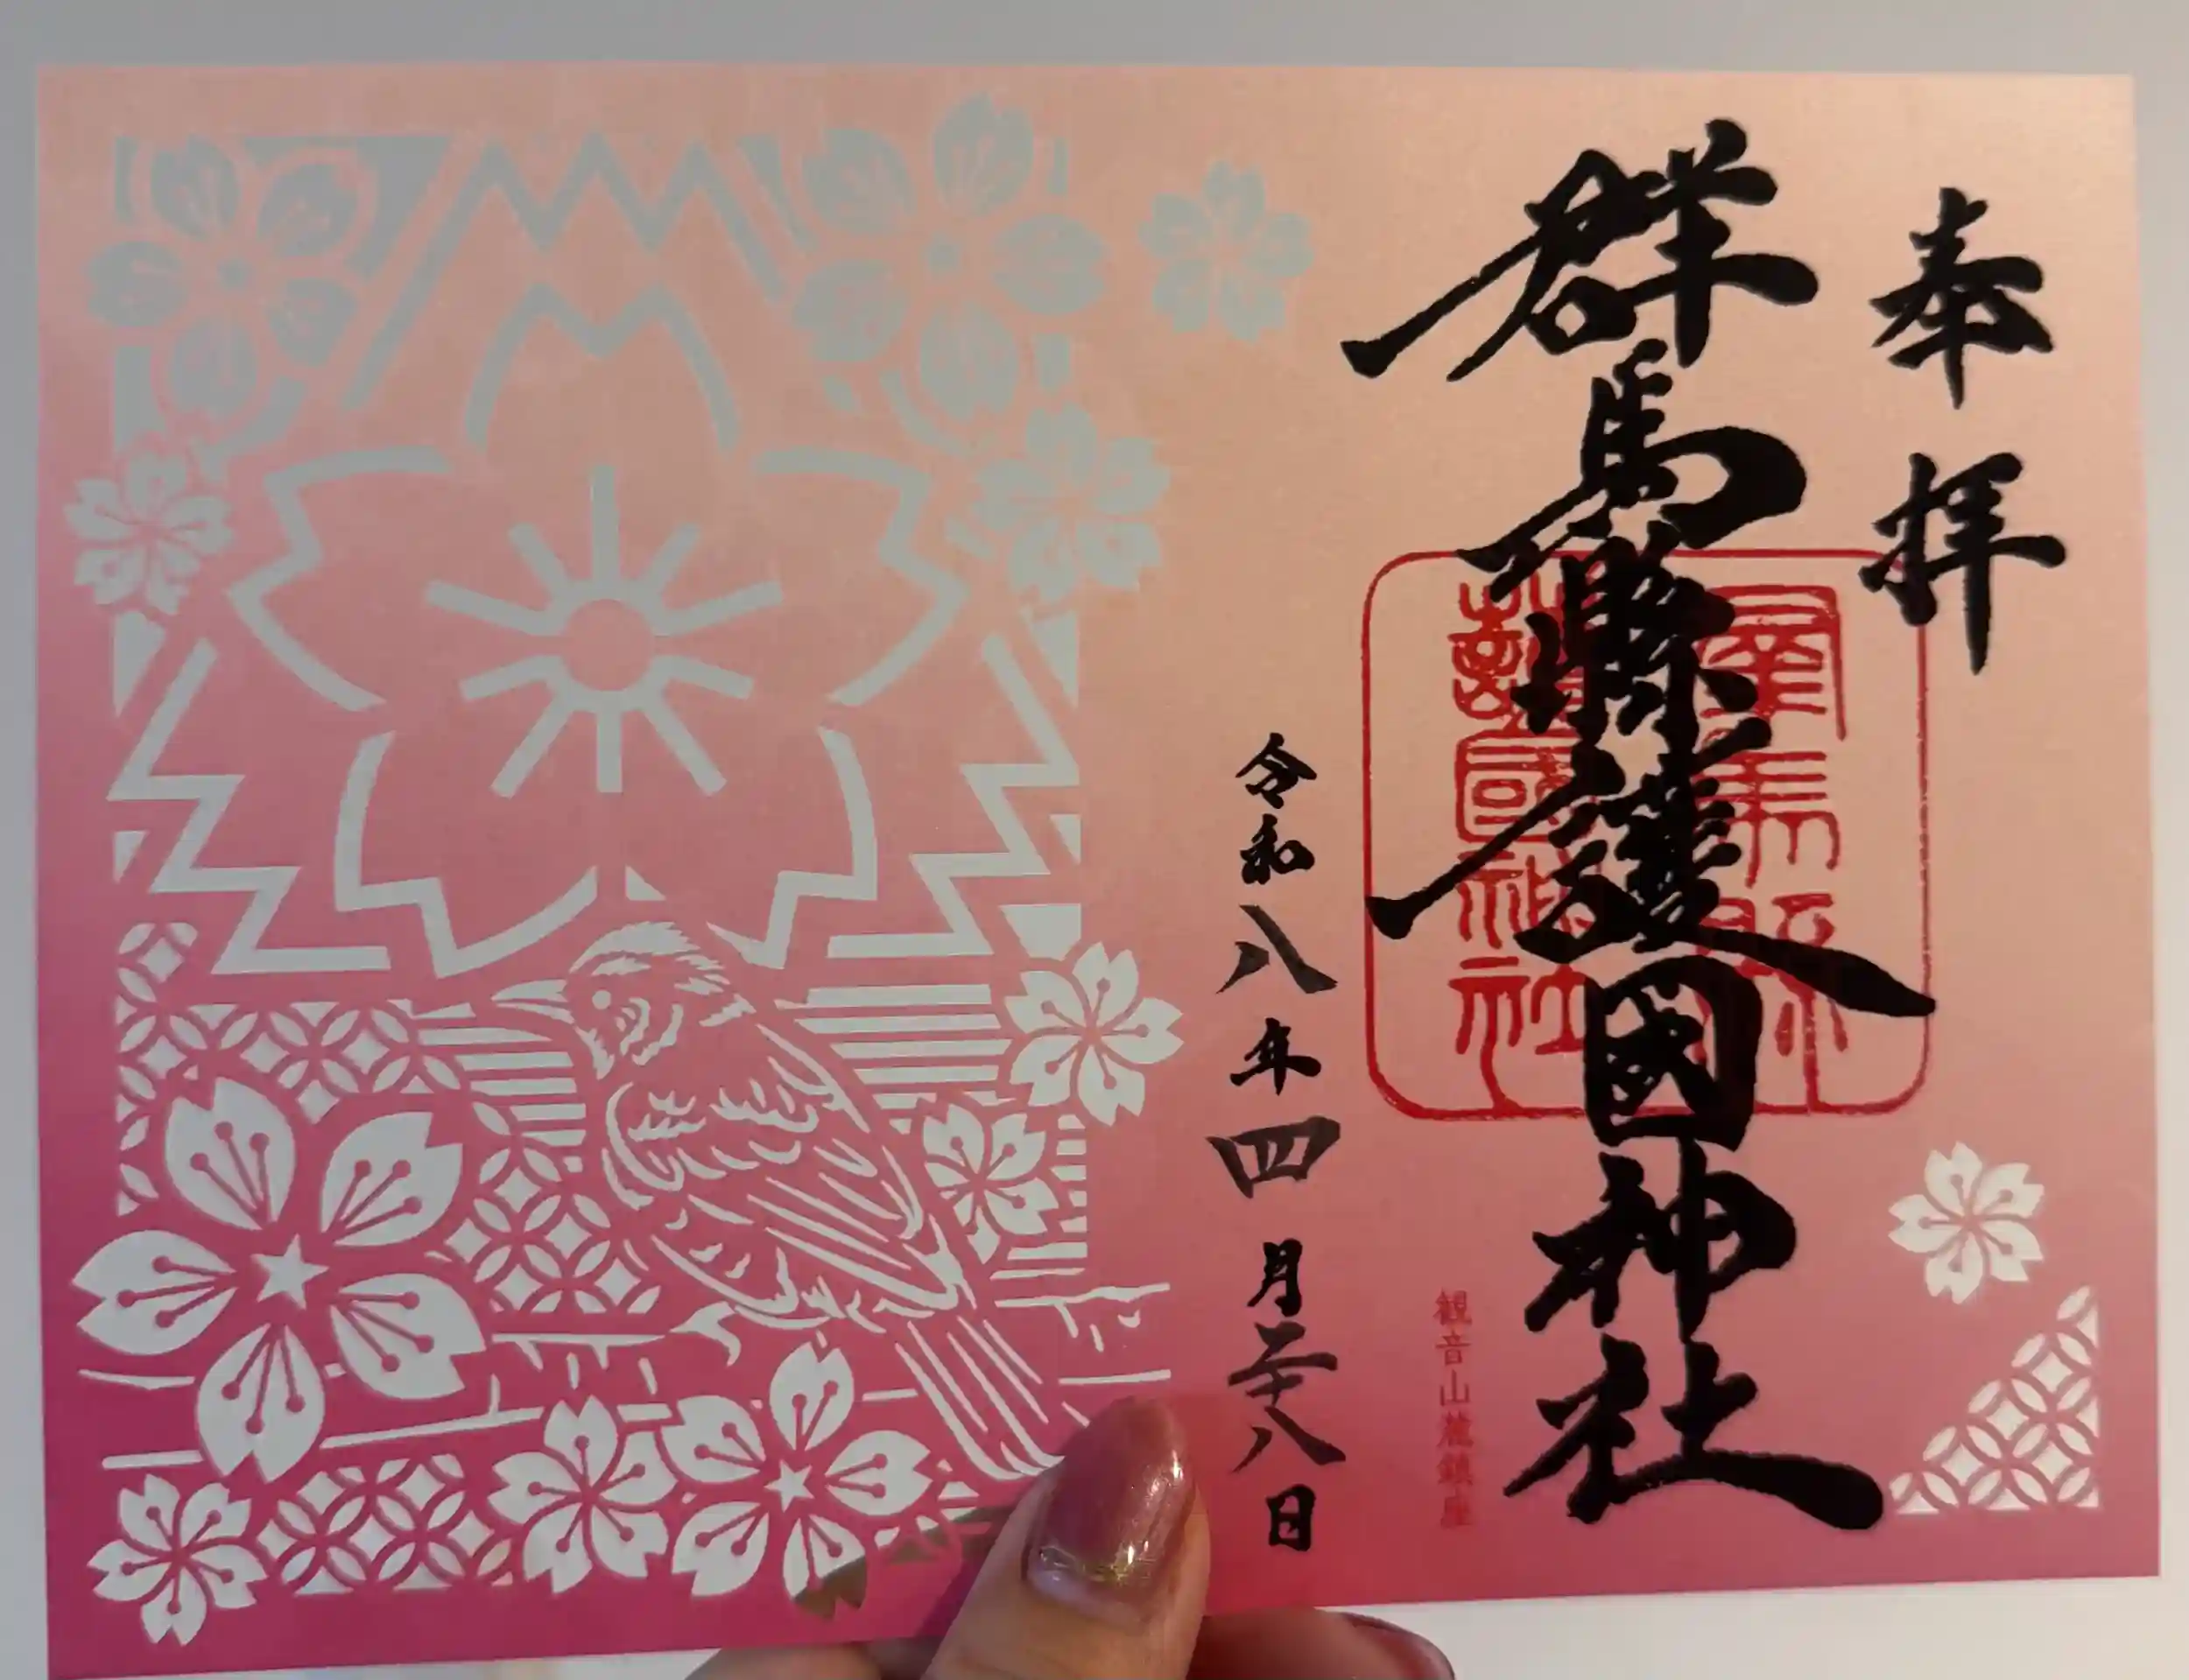 奉拝
群馬縣護國神社
群馬縣
護國神社
観音山麓鎮座
令和八年四月二十八日